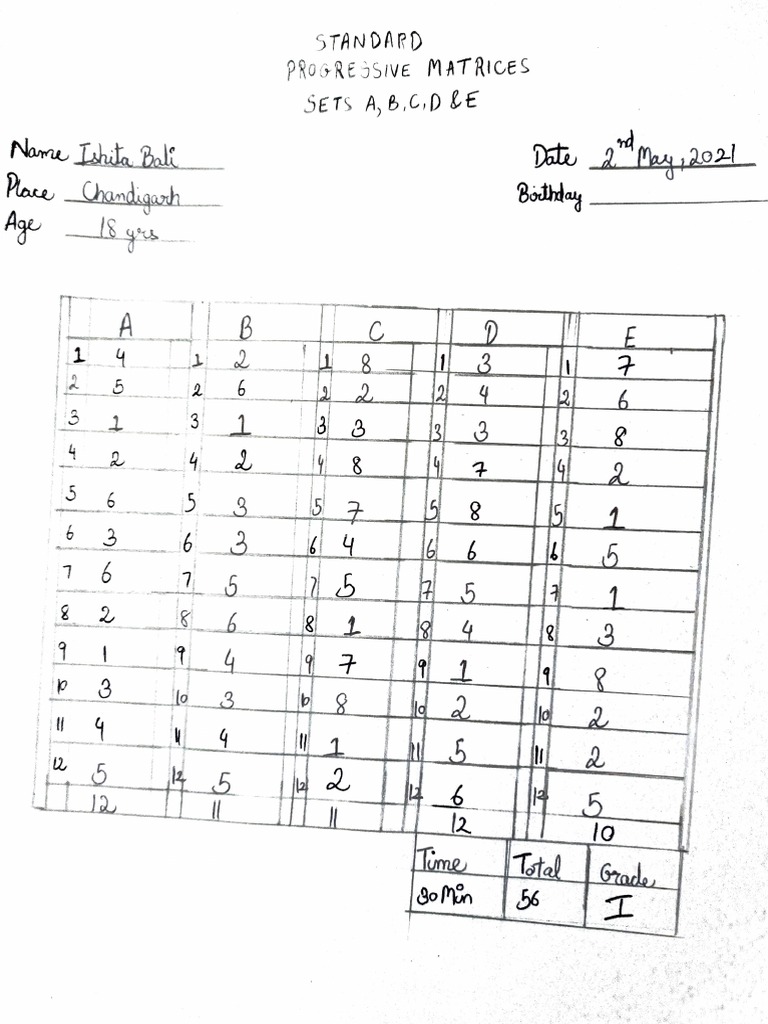 STANDARD
PROGRESSIVE MATRICES
SETS A, B, C, D & E
Name Ishita Bali
Date 2nd May, 2021
Place Chandigarh
Birthday
Age 18 yrs
A B C D E
1 4 1 2 1 8 1 3 1 7
2 5 2 6 2 2 2 4 2 6
3 1 3 1 3 3 3 3 3 8
4 2 4 2 4 8 4 7 4 2
5 6 5 3 5 7 5 8 5 1
6 3 6 3 6 4 6 6 6 5
7 6 7 5 7 5 7 5 7 1
8 2 8 6 8 1 8 4 8 3
9 1 9 4 9 7 9 1 9 8
10 3 10 3 10 8 10 2 10 2
11 4 11 4 11 1 11 5 11 2
12 5 12 5 12 2 12 6 12 5
12 11 11 12 10
Time Total Grade
30 Min 56 I